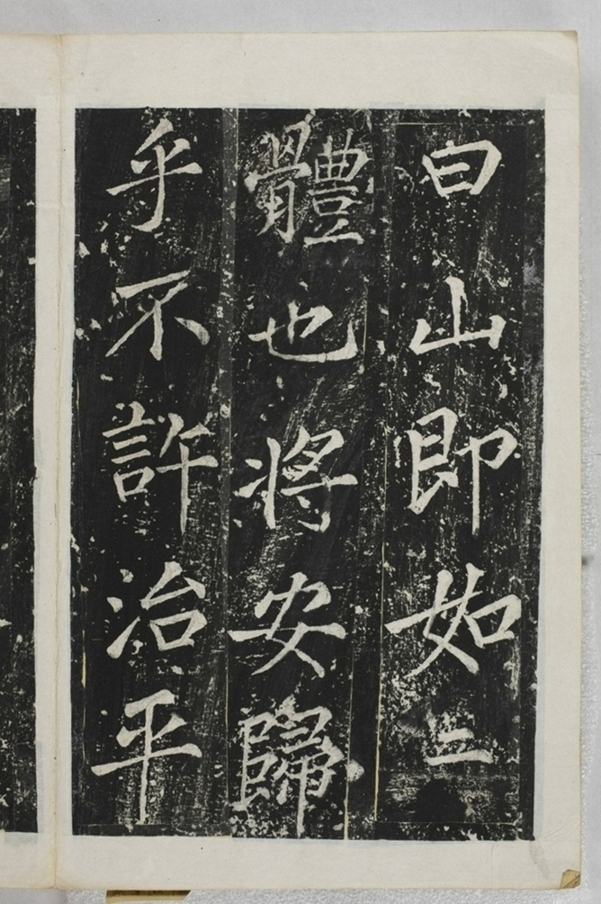 曰山即如
體也将安歸
乎不許治平